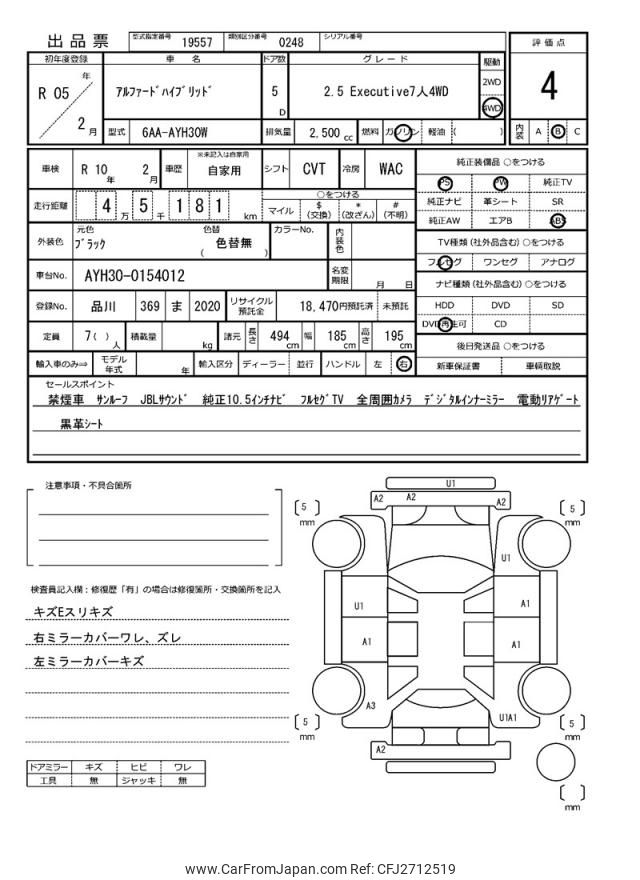 出品票 型式指定番号 19557 類別区分番号 0248 シリアル番号
評価点
4
内装 A B C
初年度登録 車名 ドア数 グレード 駆動
R 05 年 2 月
アルファードハイブリッド
5 D
2.5 Executive7人4WD
2WD
4WD
型式 6AA-AYH30W 排気量 2,500 cc 燃料 ガソリン 軽油 ( )
車検 R 10 年 2 月 車歴 ※未記入は自家用 自家用 シフト CVT 冷房 WAC
走行距離 4 万 5 千 1 8 1 km
○をつける
マイル $ (交換) * (改ざん) # (不明)
外装色 元色 ブラック 色替 ( 色替無 ) カラーNo. 内装色
車台No. AYH30-0154012 名変期限 月 日
登録No. 品川 369 ま 2020 リサイクル預託金 18,470円預託済 未預託
定員 7( )人 積載量 kg 諸元 長さ 494 cm 幅 185 cm 高さ 195 cm
輸入車のみ⇒ モデル年式 年 輸入区分 ディーラー 並行 ハンドル 左 右
純正装備品 ○をつける
PS PW 純正TV
純正ナビ 革シート SR
純正AW エアB ABS
TV種類 (社外品含む) ○をつける
フルセグ ワンセグ アナログ
ナビ種類 (社外品含む) ○をつける
HDD DVD SD
DVD再生可 CD
後日発送品 ○をつける
新車保証書 車輌取説
セールスポイント
禁煙車 サンルーフ JBLサウンド 純正10.5インチナビ フルセグTV 全周囲カメラ デジタルインナーミラー 電動リアゲート
黒革シート
注意事項・不具合箇所
検査員記入欄：修復歴「有」の場合は修復箇所・交換箇所を記入
キズEスリキズ
右ミラーカバーワレ、ズレ
左ミラーカバーキズ
ドアミラー キズ ヒビ ワレ
工具 無 ジャッキ 無
U1
A2 A2 A2
[ 5 ] mm
[ 5 ] mm
U1
U1 A1
A1 A1
A3 U1A1
[ 5 ] mm
[ 5 ] mm
A2
[ ] mm
www.CarFromJapan.com Ref: CFJ2712519